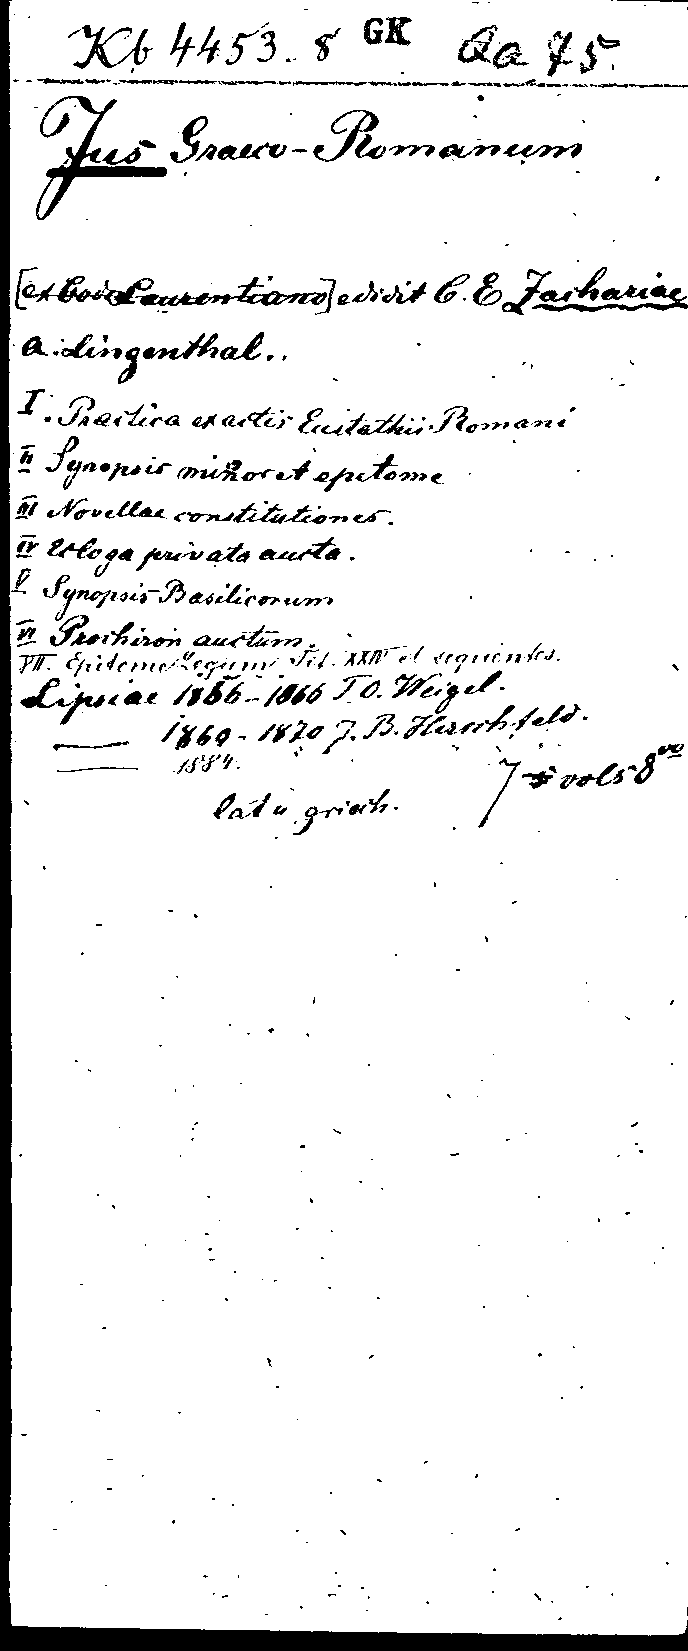 Kb 4453. 8 GK Qa 75.
Jus Graeco-Romanum
[ex Codice Laurentiano] edidit C. E. Zachariae
a. Lingenthal..
I. Practica ex actis Eustathii Romani
II Synopsis minor et epitome
III Novellae constitutiones.
IV Ecloga privata aucta.
V Synopsis Basilicorum
VI Prochiron auctum.
VII. Epitome Legum, Tit. XXIV et sequentes.
Lipsiae 1856-1866 T. O. Weigel.
— 1869-1870 J. B. Hirschfeld.
— 1884.
7 vols 8vo
lat u griech.